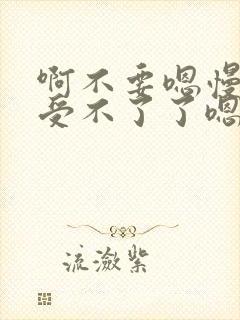 啊不要嗯慢
受不了了嗯
流潋紫